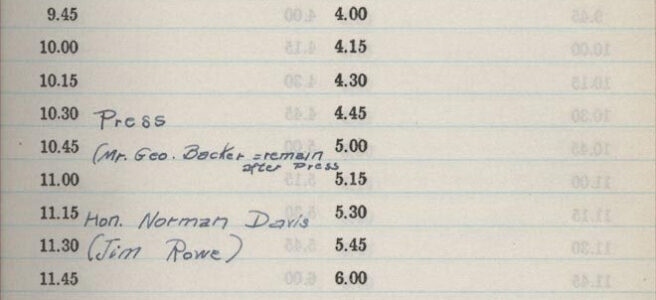 9.45 4.00
10.00 4.15
10.15 4.30
10.30 Press 4.45
10.45 (Mr. Geo. Backer = remain 5.00
after Press
11.00 5.15
11.15 Hon. Norman Davis 5.30
11.30 (Jim Rowe) 5.45
11.45 6.00